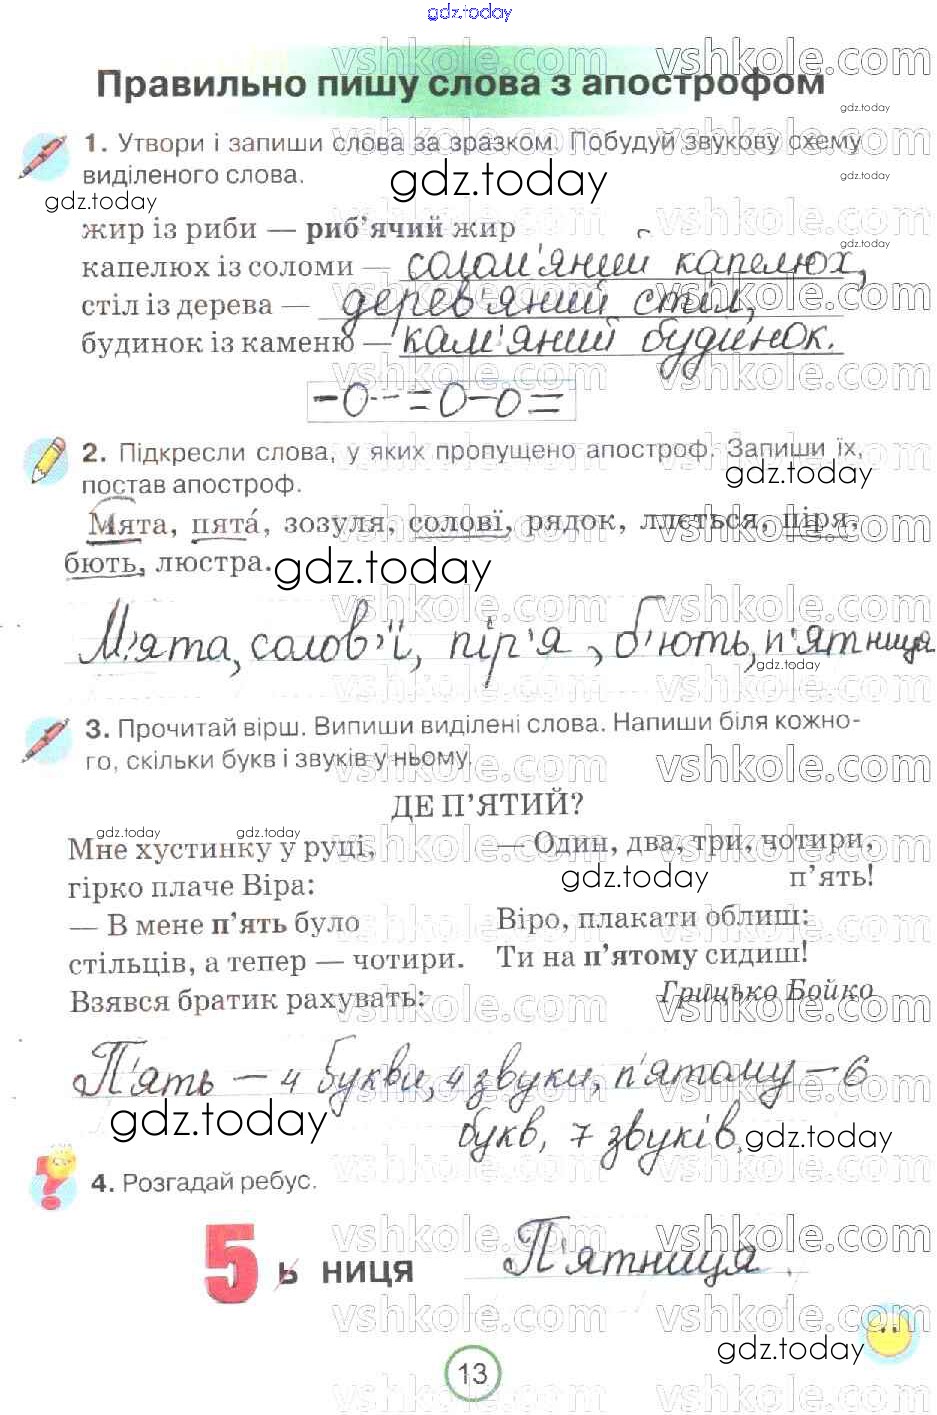 gdz.today
Правильно пишу слова з апострофом
1. Утвори і запиши слова за зразком. Побудуй звукову схему
виділеного слова.
жир із риби — риб’ячий жир
капелюх із соломи — солом'яний капелюх,
стіл із дерева — дерев'яний стіл,
будинок із каменю — кам'яний будинок.
–О--=О–О=
2. Підкресли слова, у яких пропущено апостроф. Запиши їх,
постав апостроф.
Мята, пята́, зозуля, солові, рядок, ллється, піря,
бють, люстра.
М'ята, солов'ї, пір'я, б'ють, п'ятниця
3. Прочитай вірш. Випиши виділені слова. Напиши біля кожно-
го, скільки букв і звуків у ньому.
ДЕ П’ЯТИЙ?
Мне хустинку у руці,
гірко плаче Віра:
— В мене п’ять було
стільців, а тепер — чотири.
Взявся братик рахувать:
— Один, два, три, чотири,
п’ять!
Віро, плакати облиш:
Ти на п’ятому сидиш!
Грицько Бойко
П'ять – 4 букви, 4 звуки, п'ятому – 6
букв, 7 звуків.
4. Розгадай ребус.
5 ь ниця П'ятниця.
13
vshkole.com
gdz.today